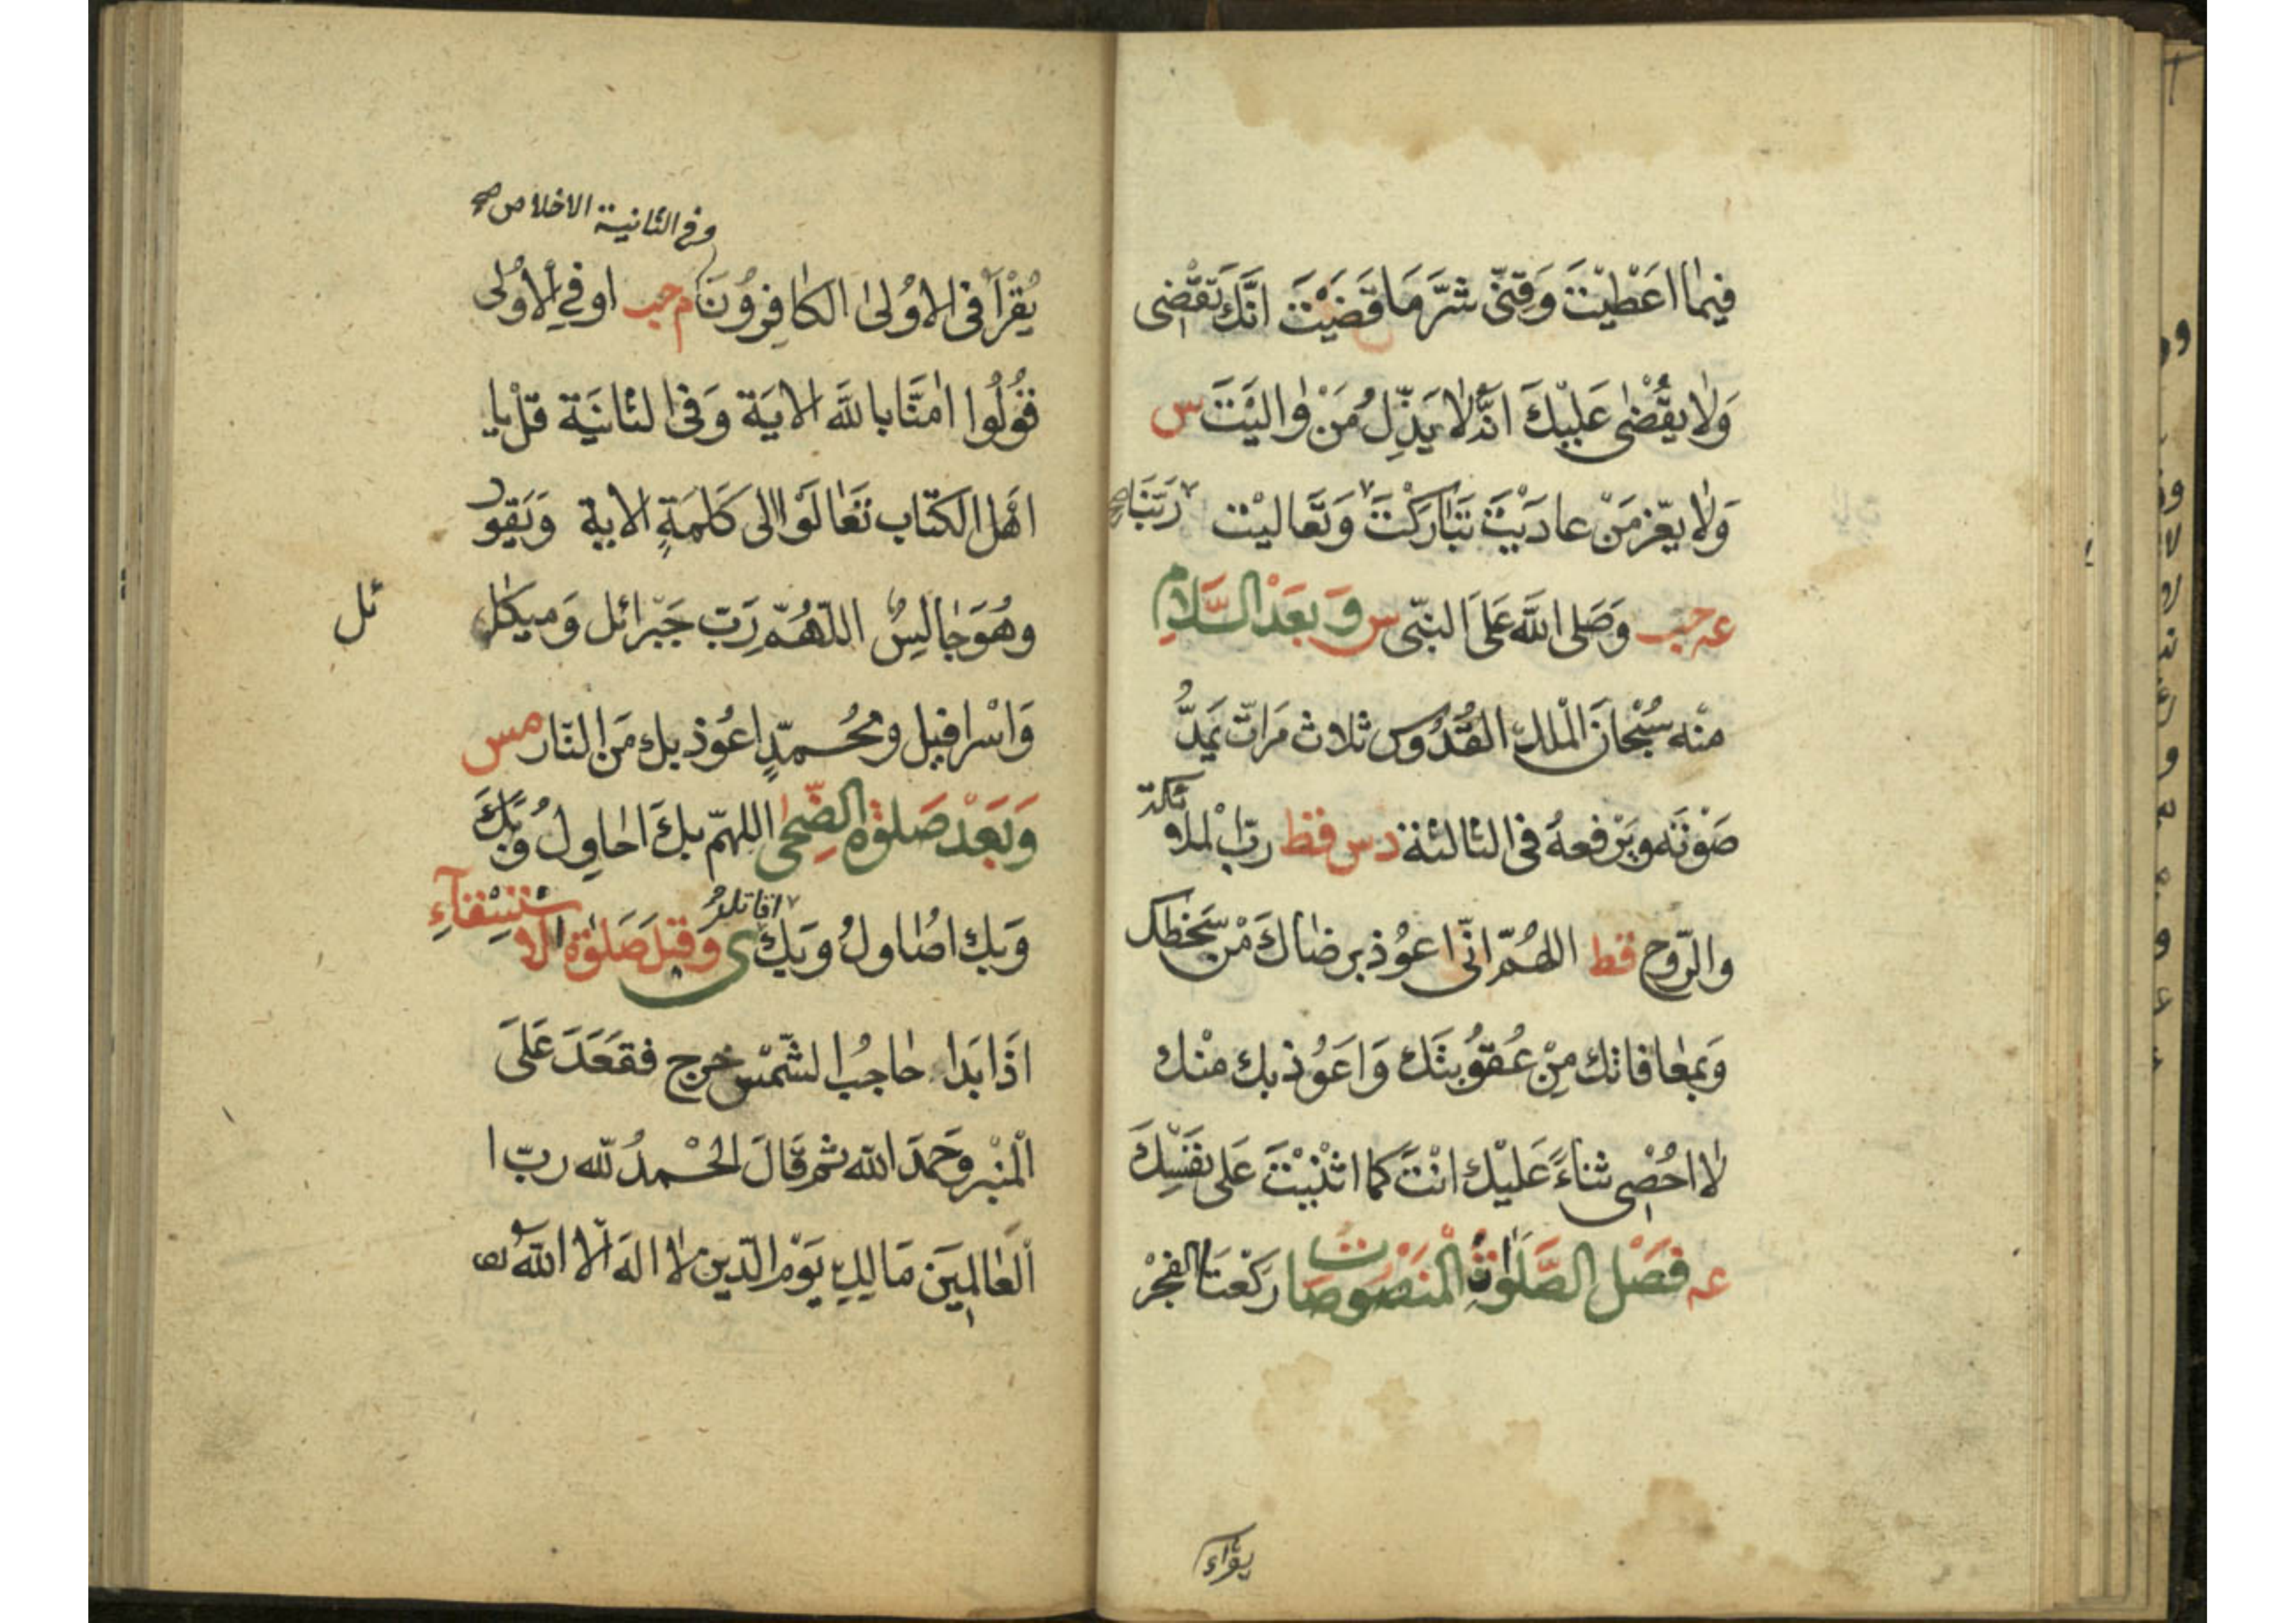 فِيمَا اَعْطَيْتَ وَقِنِّى شَرَّ مَا قَضَيْتَ اِنَّكَ تَقْضِى
وَلَا يُقْضٰى عَلَيْكَ اِنَّهُ لَا يَذِلُّ مَنْ وَالَيْتَ س
وَلَا يَعِزُّ مَنْ عَادَيْتَ تَبَارَكْتَ رَبَّنَا صح وَتَعَالَيْتَ
عه حب وَصَلَّى اللّٰهُ عَلَى النَّبِىّ س وَبَعْدَ السَّلَامِ
مِنْه سُبْحَانَ الْمَلِكِ القُدُّوسِ ثلاث مَرَاتٍ يَمُدُّ
صَوْتَه وَيَرْفعهُ فى الثالثة د س قط رَبّ الْملائكة
والرّوح قط اللهُمّ اِنّى اعوُذ برضاكَ مِنْ سَخَطِكَ
وَبِمعافاتك مِنْ عُقوُبتك وَاعَوُذ بك مِنْك
لا اُحْصِى ثناءً عَليْكَ انْتَ كما اثْنَيْتَ عَلى نَفْسِكَ
عه فَصْل الصَّلٰوةِ الْمَنْصُوصَات رَكْعَتَا الفَجْرْ
يقراء
وفى الثانية الاخلاص صح
يُقْرَأ فى الاوُلىٰ الكافِروُنَ م حب او فِى الاوُلى
قوُلُوا اٰمَنَّا باللّٰه الايَة وَفى الثانيَة قلْ يا
اَهْل الكتَاب تعَالَوْا الى كَلِمَةٍ الاية وَيَقول
وهُوَ جالِسٌ اللّهُمّ رَبّ جَبْرائل وَميكائل
ئل
وَاسْرافيل ومُحُمّدٍ اعوُذ بك مِنَ النّار مس
وَبَعْدَ صَلٰوة الضُّحٰى اللهمّ بكَ احاوِلُ وَبِكَ
وَبِك اصُاولُ وَبِك اقاتل ى وقبل صَلٰوة الاستسقآءِ
اذَا بَدَا حاجبُ الشّمْس خرج فقعَدَ عَلىَ
الْمنْبر وَحَمدَ الله ثم قَالَ الحَمدُ للّٰه ربّ ا
الْعَالَمِينَ مَالِكِ يَوْم الدّين لا الهَ الّا اللّٰهُ